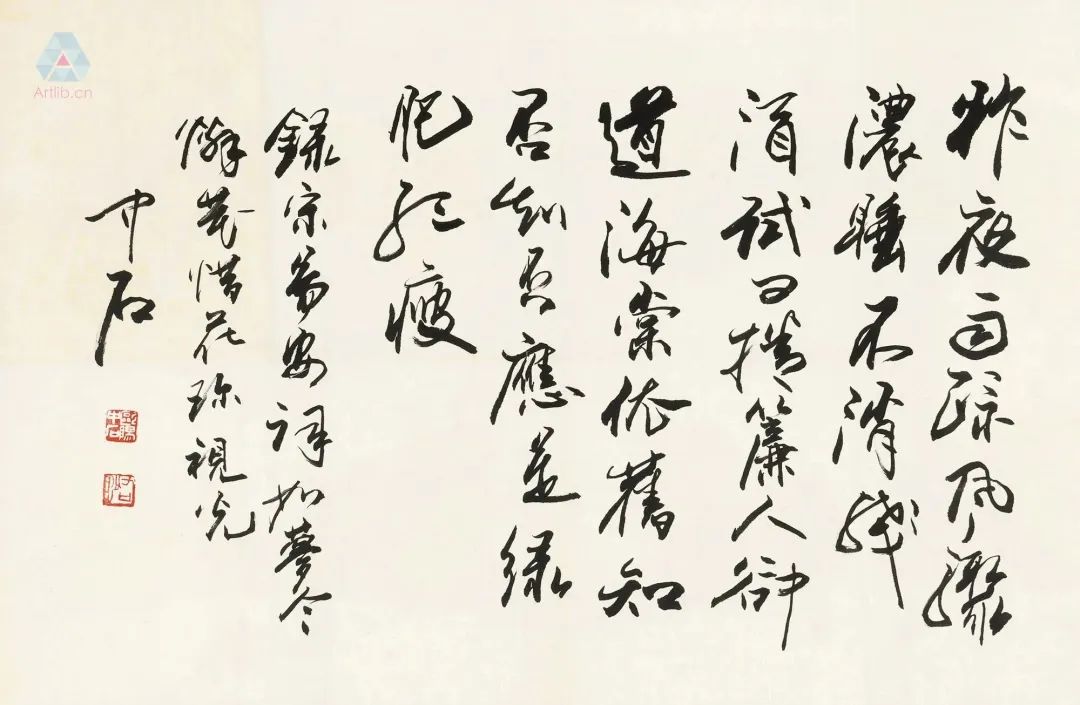 Artlib.cn
昨夜雨踈風驟
濃睡不消殘
酒試問捲簾人卻
道海棠依舊知
否知否應是綠
肥紅瘦
錄宋易安詞如夢令
憐花惜花珍視
中石
歐陽中石